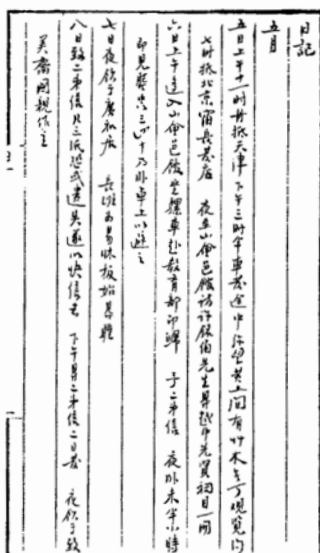 日記
五月
五日上午十一时舟抵天津下午三时半車發途中弥望黄土間有艸木无可觀覧約
七时抵北京宿長發店 夜至山會邑館訪許銘伯先生㝵越中先賢祠目一冊
六日上午迻入山會邑館 坐騾車赴敎育部即歸 予二弟信 夜卧未半小時
即見蜰虫三四十乃卧卓上以避之
七日夜飲于廣和居 長班為易牀板始㝵睡
八日致二弟信凡三紙恐或遺失遂以快信去 下午㝵二弟信二日發 夜飲于致
美齋國親作主